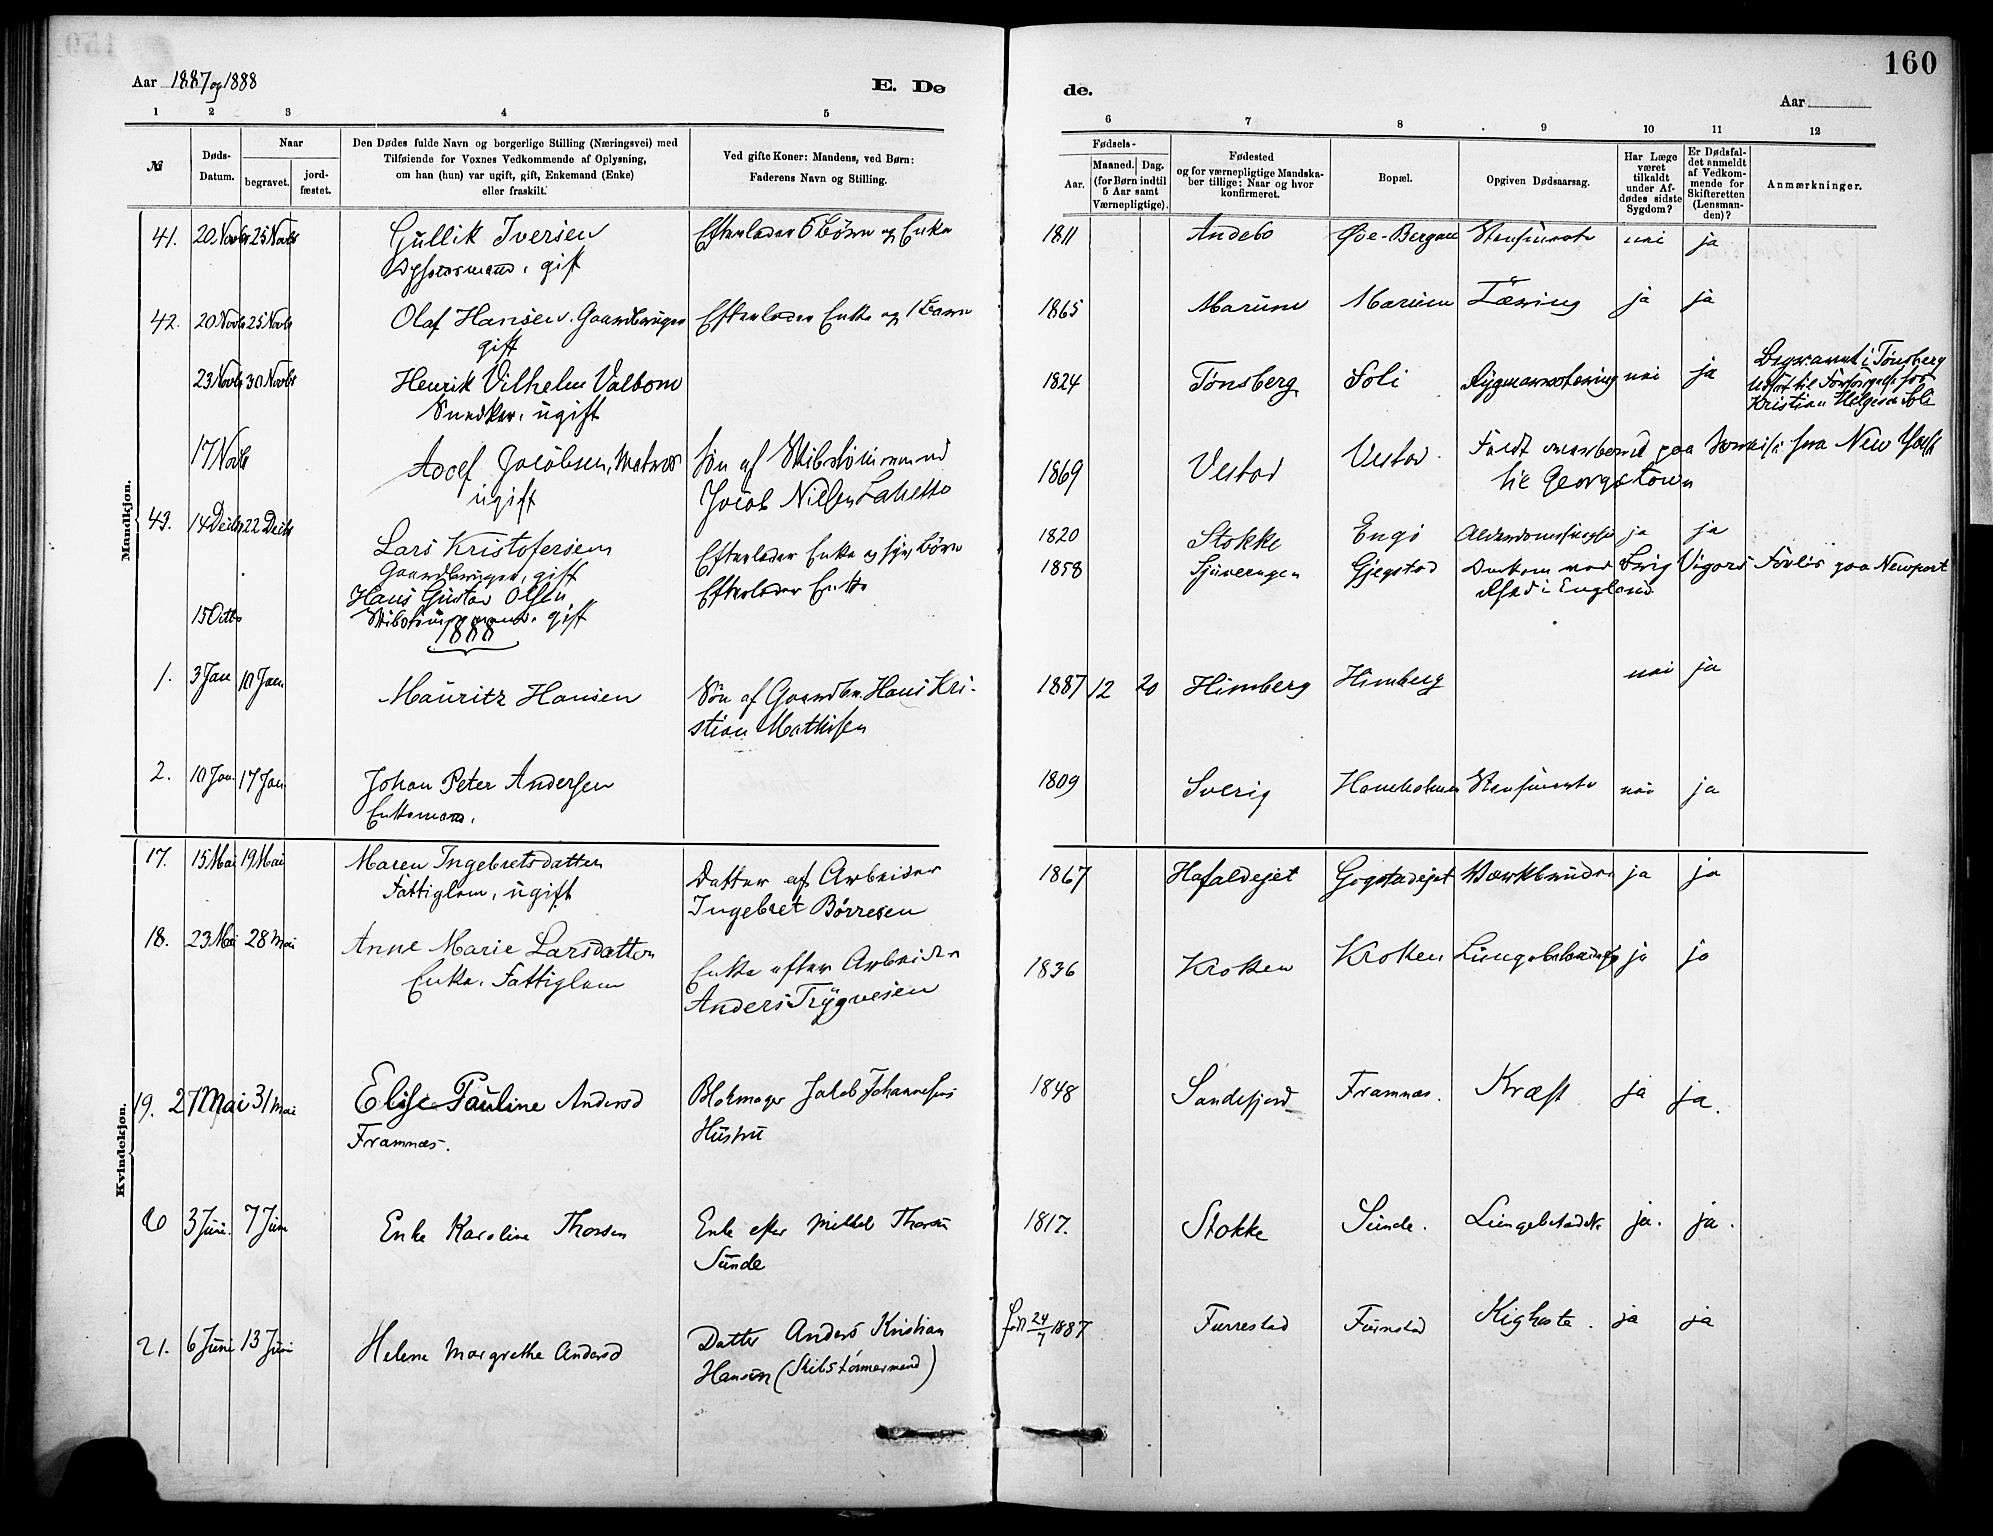 160
Aar 1887 og 1888
E. Dø
de.
Aar
1 2 3 4 5
6 7 8 9 10 11 12
№
Døds-
Datum.
Naar
begravet.
jord-
fæstet.
Den Dødes fulde Navn og borgerlige Stilling (Næringsvei) med
Tilføiende for Voxnes Vedkommende af Oplysning,
om han (hun) var ugift, gift, Enkemand (Enke)
eller fraskilt.
Ved gifte Koner: Mandens, ved Børn:
Faderens Navn og Stilling.
Fødsels-
Aar.
Maaned. Dag.
(for Børn indtil
5 Aar samt
Værnepligtige).
Fødested
og for værnepligtige Mandska-
ber tillige: Naar og hvor
konfirmeret.
Bopæl.
Opgiven Dødsaarsag.
Har Læge
været
tilkaldt
under Af-
dødes sidste
Sygdom?
Er Dødsfal-
det anmeldt
af Vedkom-
mende for
Skifteretten
(Lensman-
den)?
Anmærkninger.
Mandkjøn.
41. 20 Novbr 25 Novbr Gullik Iversen Efterlader 5 Børn og Enke 1811 Andebo Øde-Bergan nei ja
gift
42. 20 Novbr 25 Novbr Olaf Hansen. Gaardbruger Efterlader Enke og 1 Barn 1865 Marum Marum Tæring ja ja
gift
23 Novbr 30 Novbr Henrik Vilhelm Valbom 1824 Tønsberg Soli Rygmarvstæring nei ja Begravet i Tønsberg
Snedker, ugift
Kristian Helgesen Soli
17 Novb Adolf Jacobsen, Matros Søn af Skibstømmermd 1869 Vestad Vestad Faldt overbord paa Reise fra New York
ugift Jacob Nielsen til Georgetown
43. 14 Decbr 22 Decbr Lars Kristofersen Efterlader Enke og syv børn 1820 Stokke Engø Alderdomssvaghed ja ja
Gaardbruger, gift
15 Octbr Hans Gustav Olsen Efterlader Enke 1858 Gjegstad Druknet ved Brig Vigors Forlis paa Newport
Skibstømmermand. gift i England
1888
1. 3 Jan 10 Jan Mauritz Hansen Søn af Gaardbr. Hans Kri-
stian Mathisen 1887 12 20 Himberg Himberg nei ja
2. 10 Jan. 17 Jan Johan Peter Andersen 1809 Sverig nei ja
Enkemand.
Kvindekjøn.
17. 15 Mai 19 Mai Maren Ingebretsdatter Datter af Arbeider 1867 Hafaldejet Gogstadejet ja ja
Fattiglem, ugift Ingebret Børresen
18. 23 Mai 28 Mai Anne Marie Larsdatter Enke efter Arbeider 1836 Kroken Kroken ja ja
Enke. Fattiglem Anders Trygvesen
19. 27 Mai 31 Mai Elise Pauline Andersd Blokmager Jakob Johannesens 1848 Sandefjord Framnæs. Kræft ja ja.
Framnæs. Hustru
20 3 Juni. 7 Juni Enke Karoline Thorsen Enke efter Mikkel Thorsen 1817. Stokke Sunde. Lungebetændelse ja. ja.
Sunde
21. 6 Juni 13 Juni Helene Margrethe Andersd Datter Anders Kristian født 24/7 1887 Furrestad Furustad Kighoste. ja ja
Hansen (Skibstømmermand)